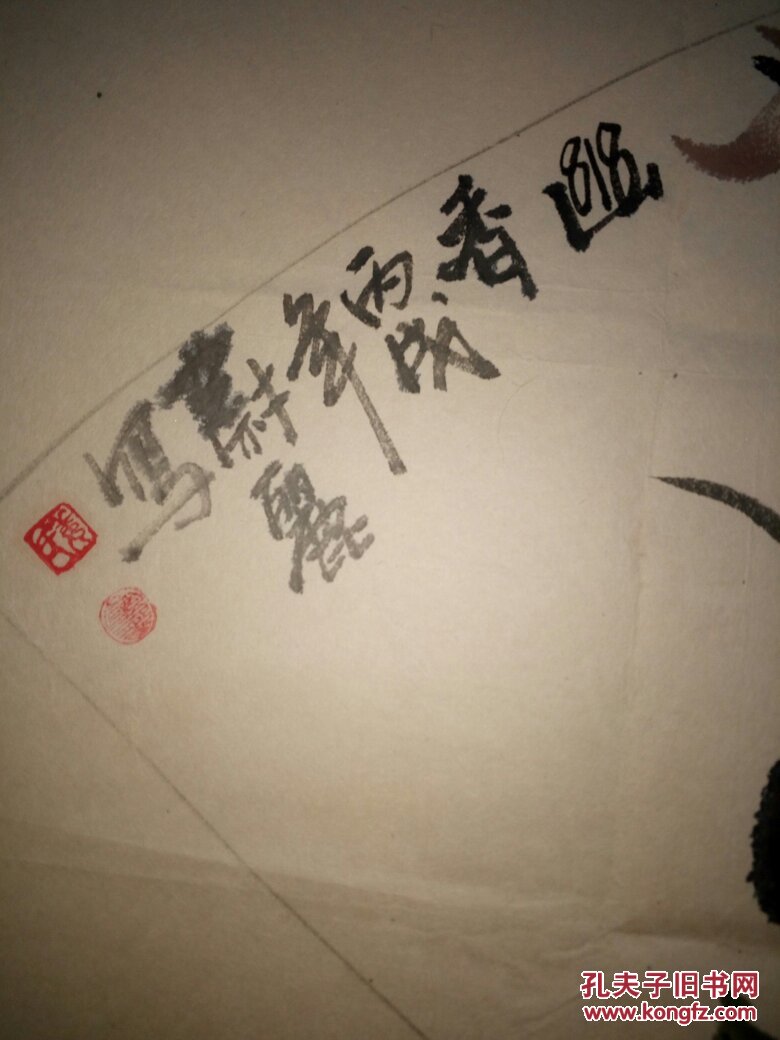 幽
香
丙戌
年
蔚麗
寫
孔夫子旧书网
www.kongfz.com